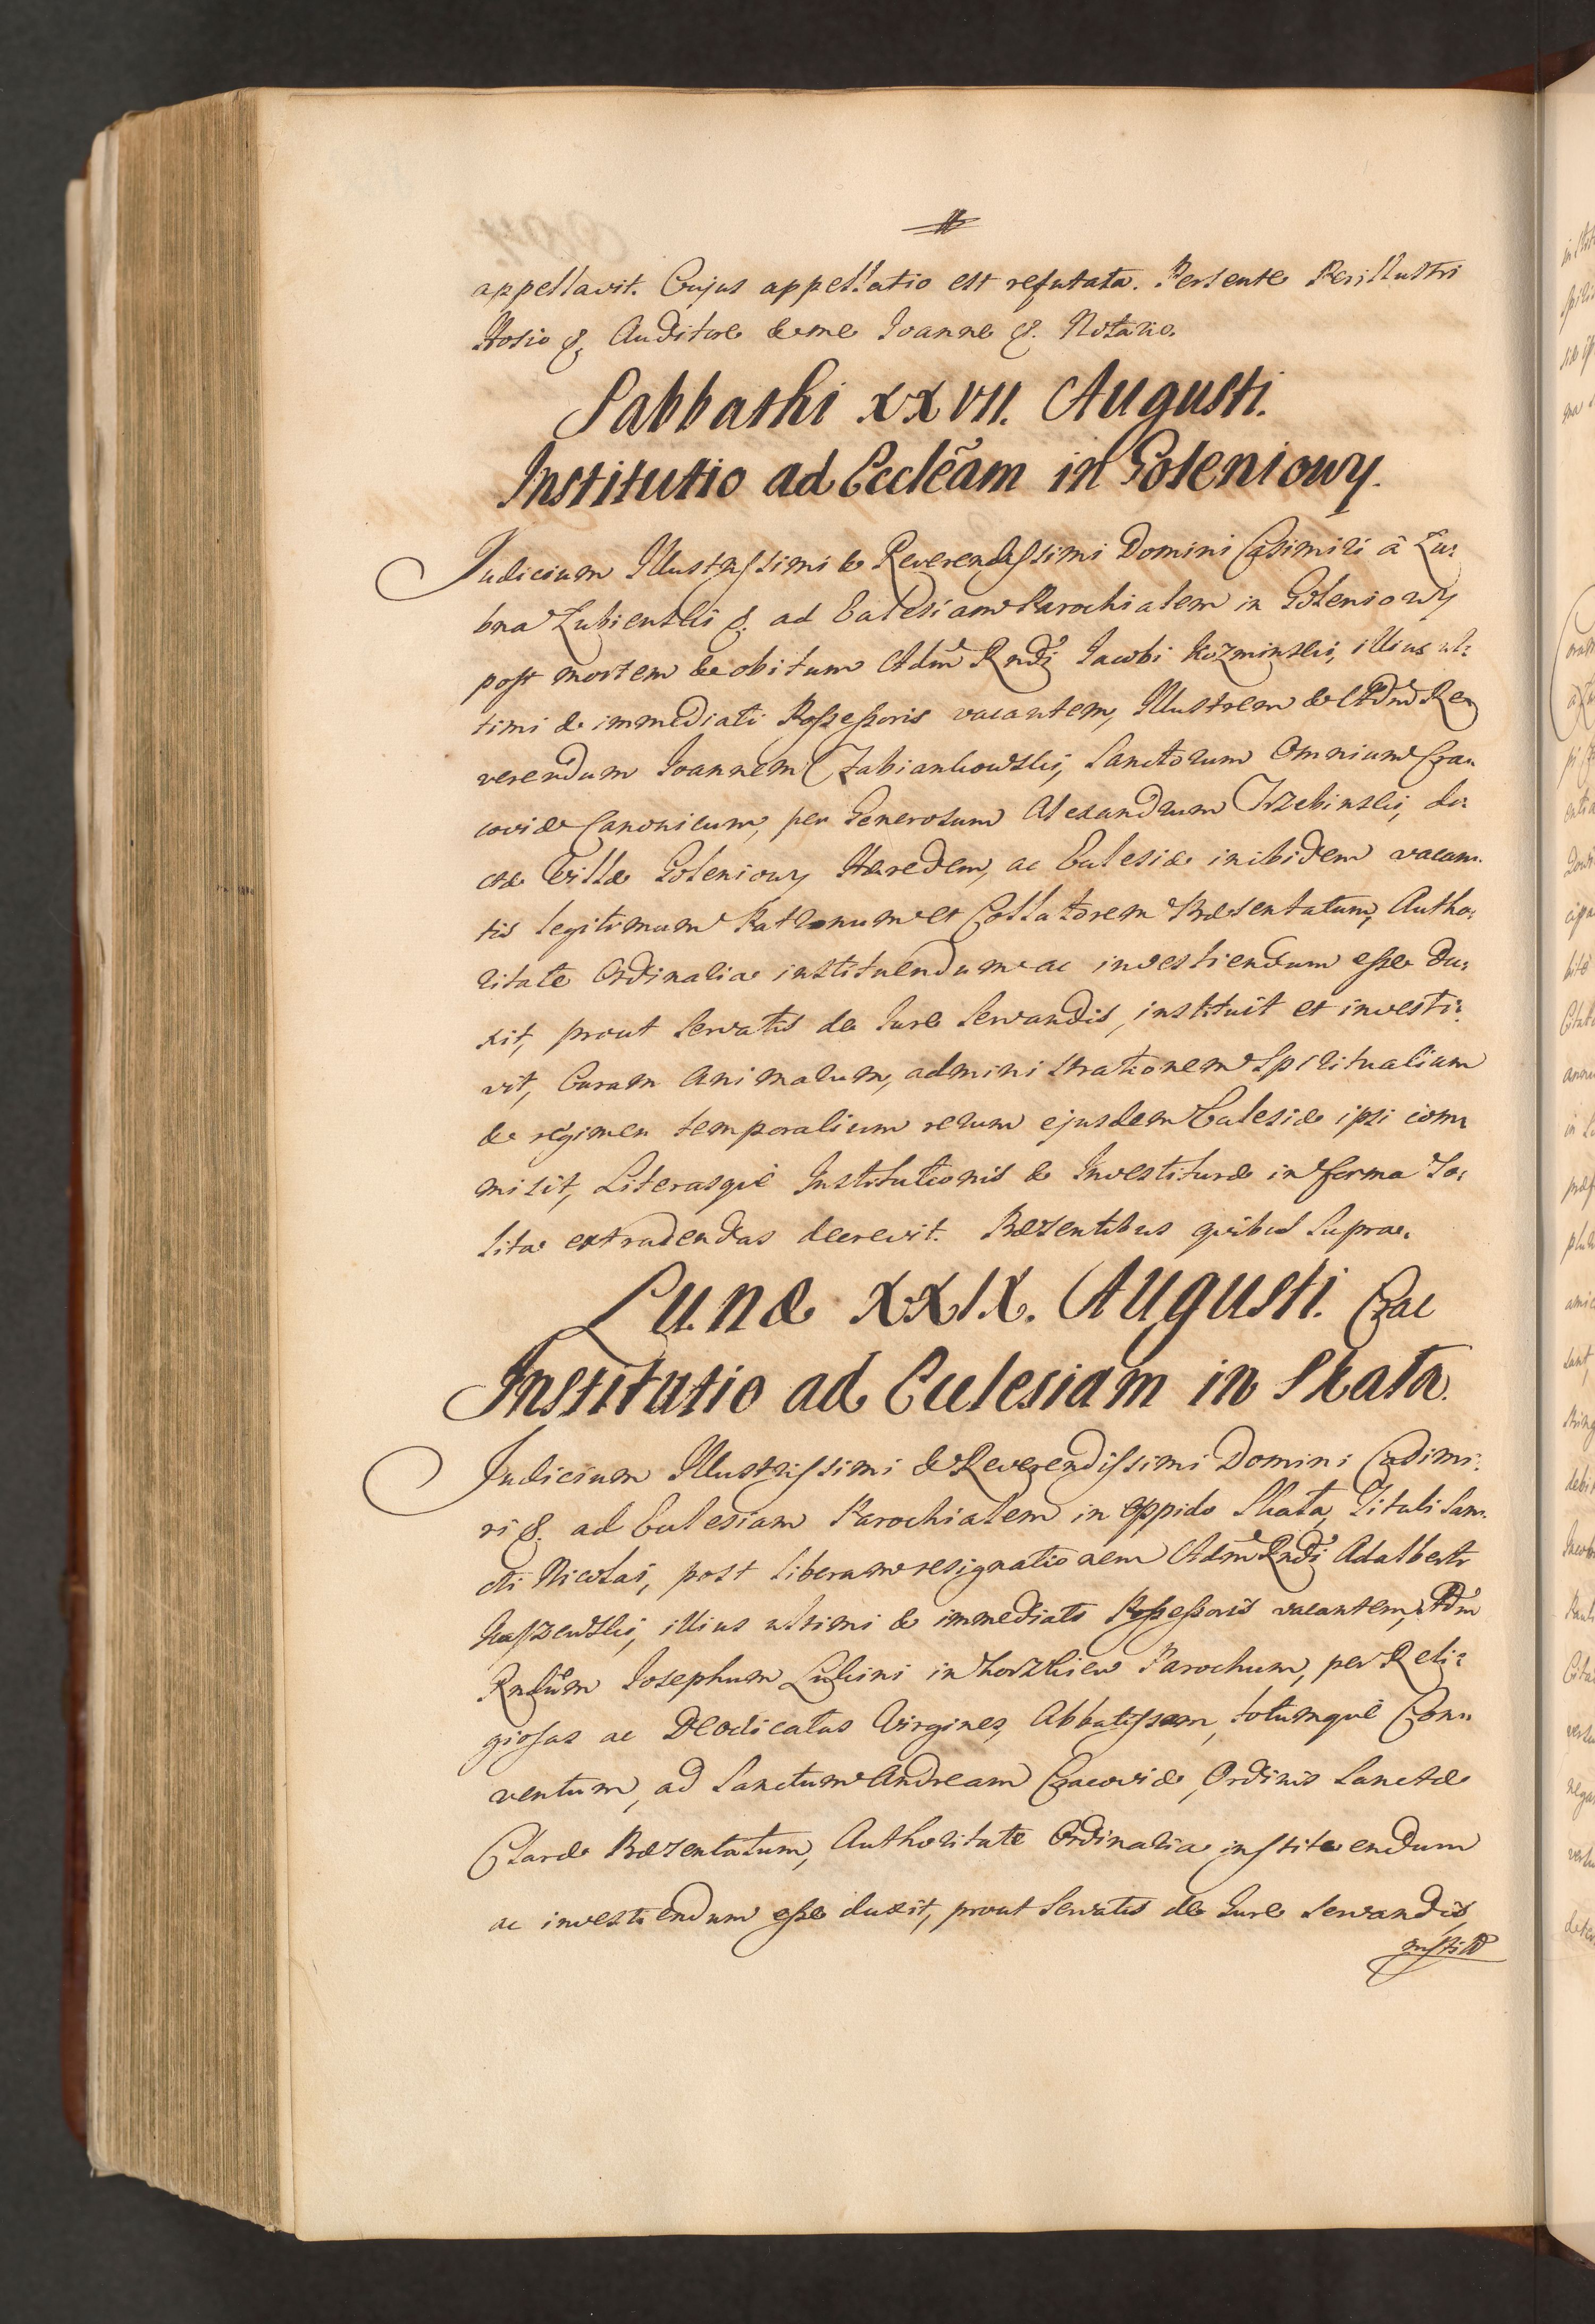 appellavit. Cujus appellatio est refutata. Persente Perillustri
Hosio &. Auditore & me Joanne &. Notario.
Sabbathi XXVII. Augusti.
Institutio ad Ecclãm in Goleniowy.
Judicium Illustrissimi & Reverendissimi Domini Casimiri à Łu:
bna Łubienski &. ad Eclesiam Parochialem in Goleniowy
post mortem & obitum Adm Rndi Jacobi Kozminski, illius ul:
timi & immediati Possessoris vacantem, Illustrem & Adm Re
verendum Joannem Czabiankowski, Sanctorum Omnium Cra:
coviæ Canonicum, per Generosum Alexandrum Trzebinski, di:
ctæ Villæ Goleniowy Hæredem, ac Eclesiæ inibidem vacan:
tis legitimum Patronum et Collatorem Præsentatum, Autho:
ritate Ordinaria instituendum ac investiendum esse du:
xit, prout servatis de Jure servandis, instituit et investi:
vit, Curam Animarum, administrationem Spiritualium
& regimen temporalium rerum ejusdem Eclesiæ ipsi com:
misit, Literasquè Institutionis & Investituræ in forma so:
lita extradendas decrevit. Præsentibus quibus supra.
Lunæ XXIX. Augusti. Crac
Institutio ad Eclesiam in Skała.
Judicium Illustrissimi & Reverendissimi Domini Casimi:
ri &. ad Eclesiam Parochialem in oppido Skała, Tituli San:
cti Nicolai, post liberam resignationem Adm Rndi Adalberti
illius ultimi & immediati Possessoris vacantem, Adm
Rndum Josephum in Parochum, per Reli:
giosas ac Deodicatas Virgines, Abbatissam, totumquè Con:
ventum, ad Sanctum Andream Cracoviæ, Ordinis Sanctæ
Claræ Præsentatum, Authoritate Ordinaria instituendum
ac investiendum esse duxit, prout servatis de Jure servandis,
instit